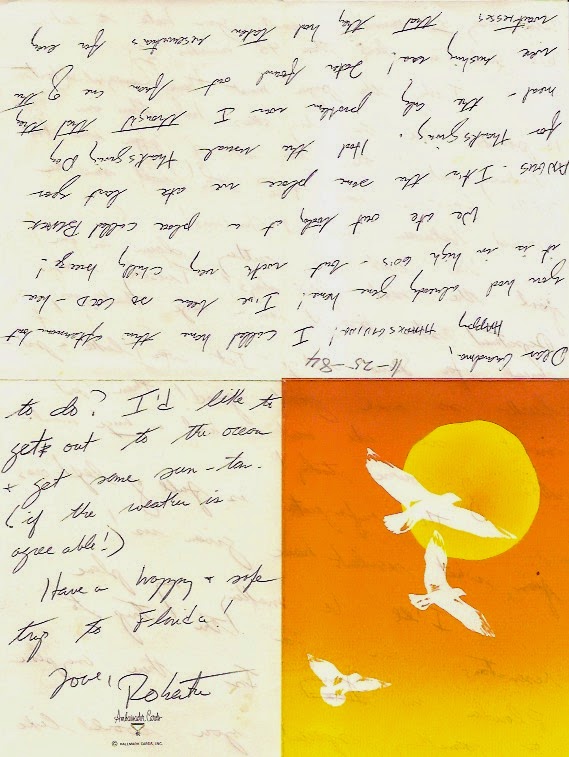 Dear Grandma, 11-25-84
HAPPY THANKSGIVING! I called home this afternoon but
you had already gone home! I've been so COLD - here
it is in high 60's - but with very chilly breeze!
We ate out today at a place called BLACK
ANGUS. It's the same place we ate last year
for Thanksgiving. Had the usual Thanksgiving Day
meal - the only problem was I thought that they
were rushing us! Later found out from one of the
waitresses that they had taken reservations for every
to do? I'd like to
get out to the ocean
& get some sun-tan.
(if the weather is
agreeable!)
Have a happy & safe
trip to Florida!
Love, Roberta
Ambassador Cards
© HALLMARK CARDS, INC.